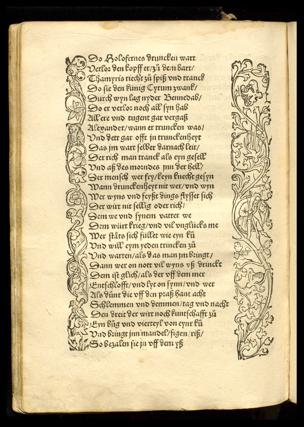 So Holofernes druncken wart
Verlor den kopff er/zů dem bart/
Thamyris richt zů spiß vnd tranck
Do sie den künig Cyrum zwanck/
Durch wyn lag nyder Bennedab/
Do er verlor noch all syn hab
All ere vnd tugent gar vergaß
Alexander/wann er truncken was/
Vnd dett gar offt jn drunckenheyt
Das jm wart selber darnach leit/
Der rich man tranck als eyn gesell
Vnd aß des morndes jnn der hell/
Der mensch wer frey/keyn knecht gesyn
Wann drunckenheyt nit wer/vnd wyn
Wer wyns vnd feyßt dings flysset sich
Der wirt nit sellig oder rich/
Dem we vnd synem vatter we
Dem würt krieg/vnd vil vnglücks me
Wer stäts sich füllet wie eyn kü
Vnd will eym yeden trincken zů
Vnd warten/als das man jm bringt/
Dann wer on nott vil wyns vß drinckt
Dem ist glich/als der vff dem mer
Entschlofft/vnd lyt on synn/vnd wer
Als dünt die vff den praß hant acht
Schlemmen vnd demmen/tag vnd nacht
Den dreit der wirt noch kuntschafft zů
Eyn bůg vnd viertteyl von eynr kü
Vnd bringt jnn mandel/figen/riß/
So bezalen sie jn vff dem yß